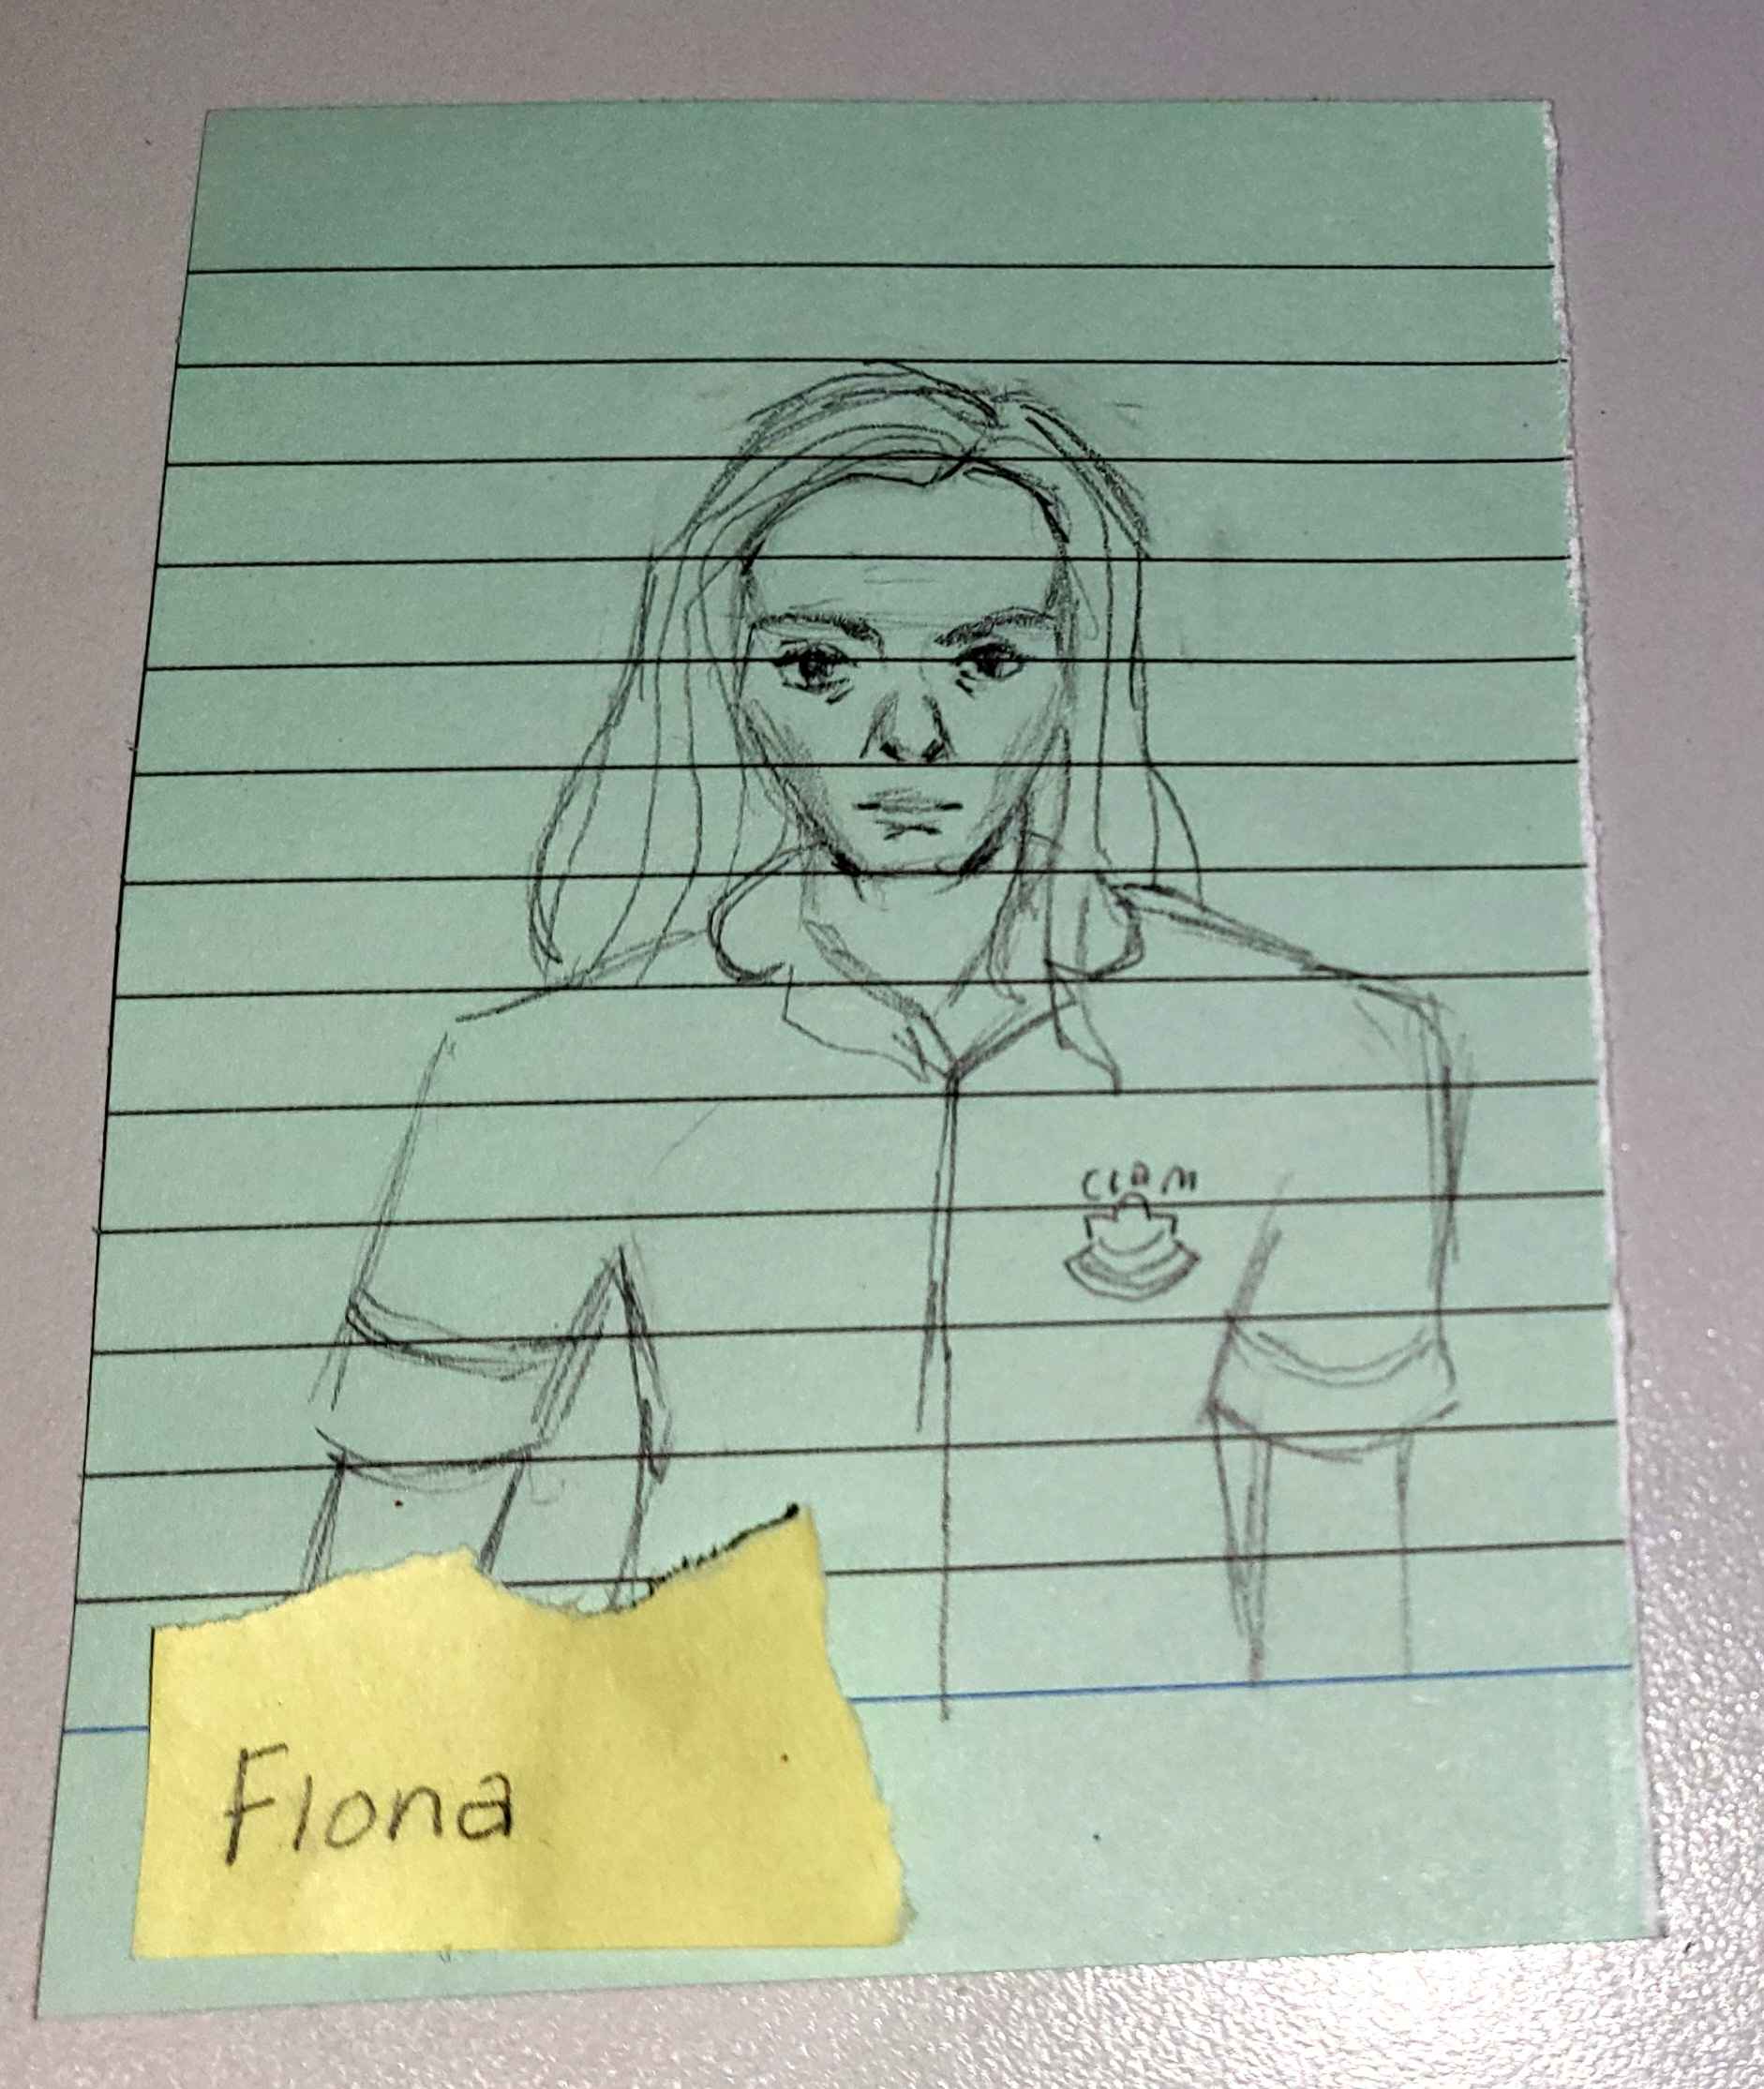 CLAM
Fiona